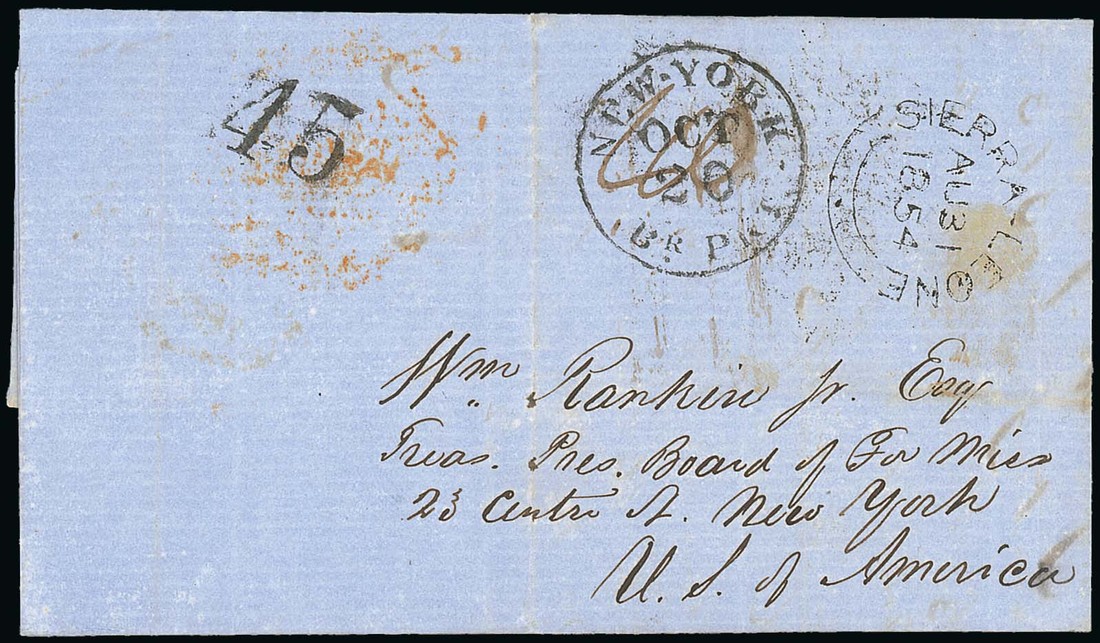 45
NEW-YORK
OCT
20
Br Pkt
SIERRA-LEONE
AU 31
1854
Wm Rankin Jr. Esq
Treas. Pres. Board of For Miss
23 Centre St. New York
U. S. of America